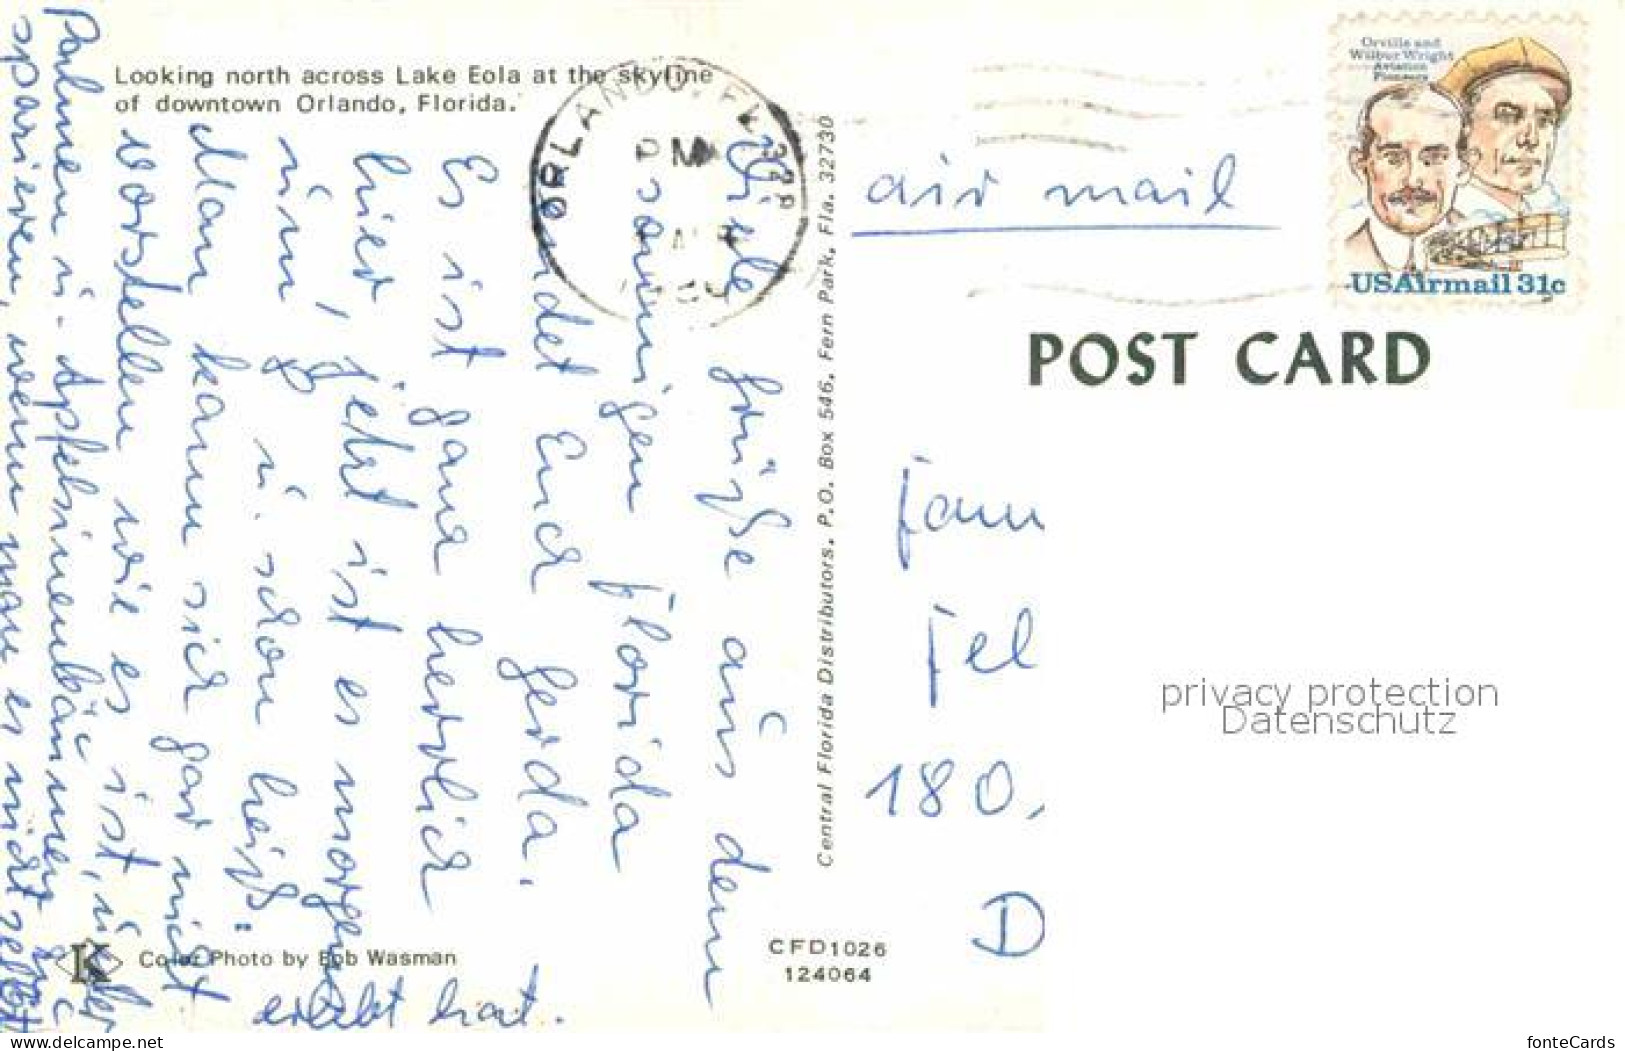 Looking north across Lake Eola at the skyline
of downtown Orlando, Florida.
ORLANDO, FL 328
PM
Viele Grüße aus dem
sonnigen Florida
sendet Euch Gerda.
Es ist ganz herrlich
hier, jetzt ist es morgens
8 u. schon heiß.
Man kann sich gar nicht
vorstellen wie es ist, unter
Palmen u. Apfelsinenbäumen
spazieren, wenn man es nicht selbst
erlebt hat.
Central Florida Distributors. P.O. Box 546, Fern Park, Fla. 32730
Color Photo by Bob Wasman
K
CFD1026
124064
Orville and
Wilbur Wright
Aviation
Pioneers
USAirmail 31c
air mail
POST CARD
Fam
Fel
180,
D
privacy protection
Datenschutz
www.delcampe.net
fonteCards